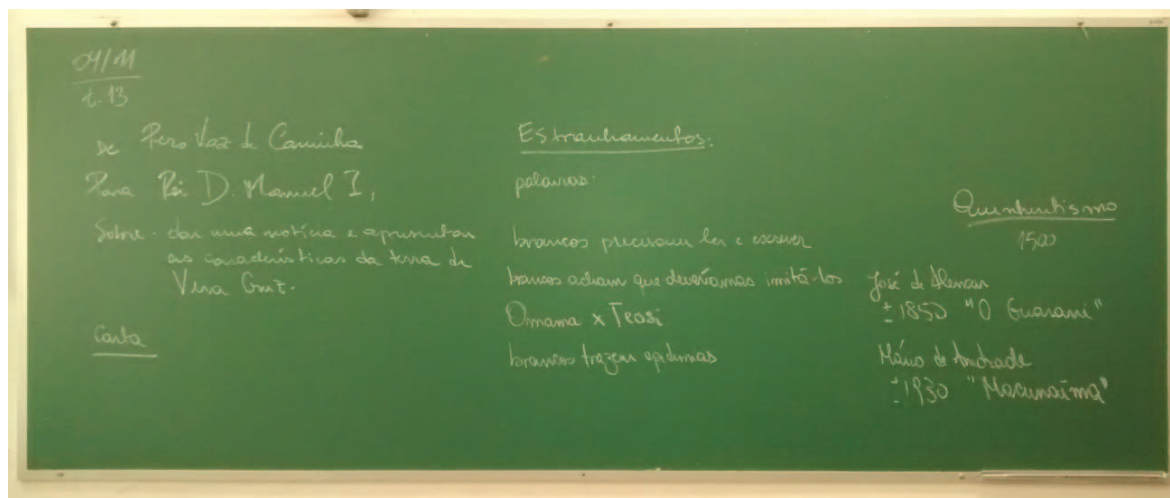 04/11
t. 13
De Pero Vaz de Caminha
Para Rei D. Manuel I,
Sobre - dar uma notícia e apresentar
as características da terra de
Vera Cruz.
Carta
Estranhamentos:
palavras:
brancos precisam ler e escrever
brancos acham que deveríamos imitá-los
Omama x Teosi
brancos trazem epidemias
Quinhentismo
1500
José de Alencar
± 1850 "O Guarani"
Mário de Andrade
± 1930 "Macunaíma"